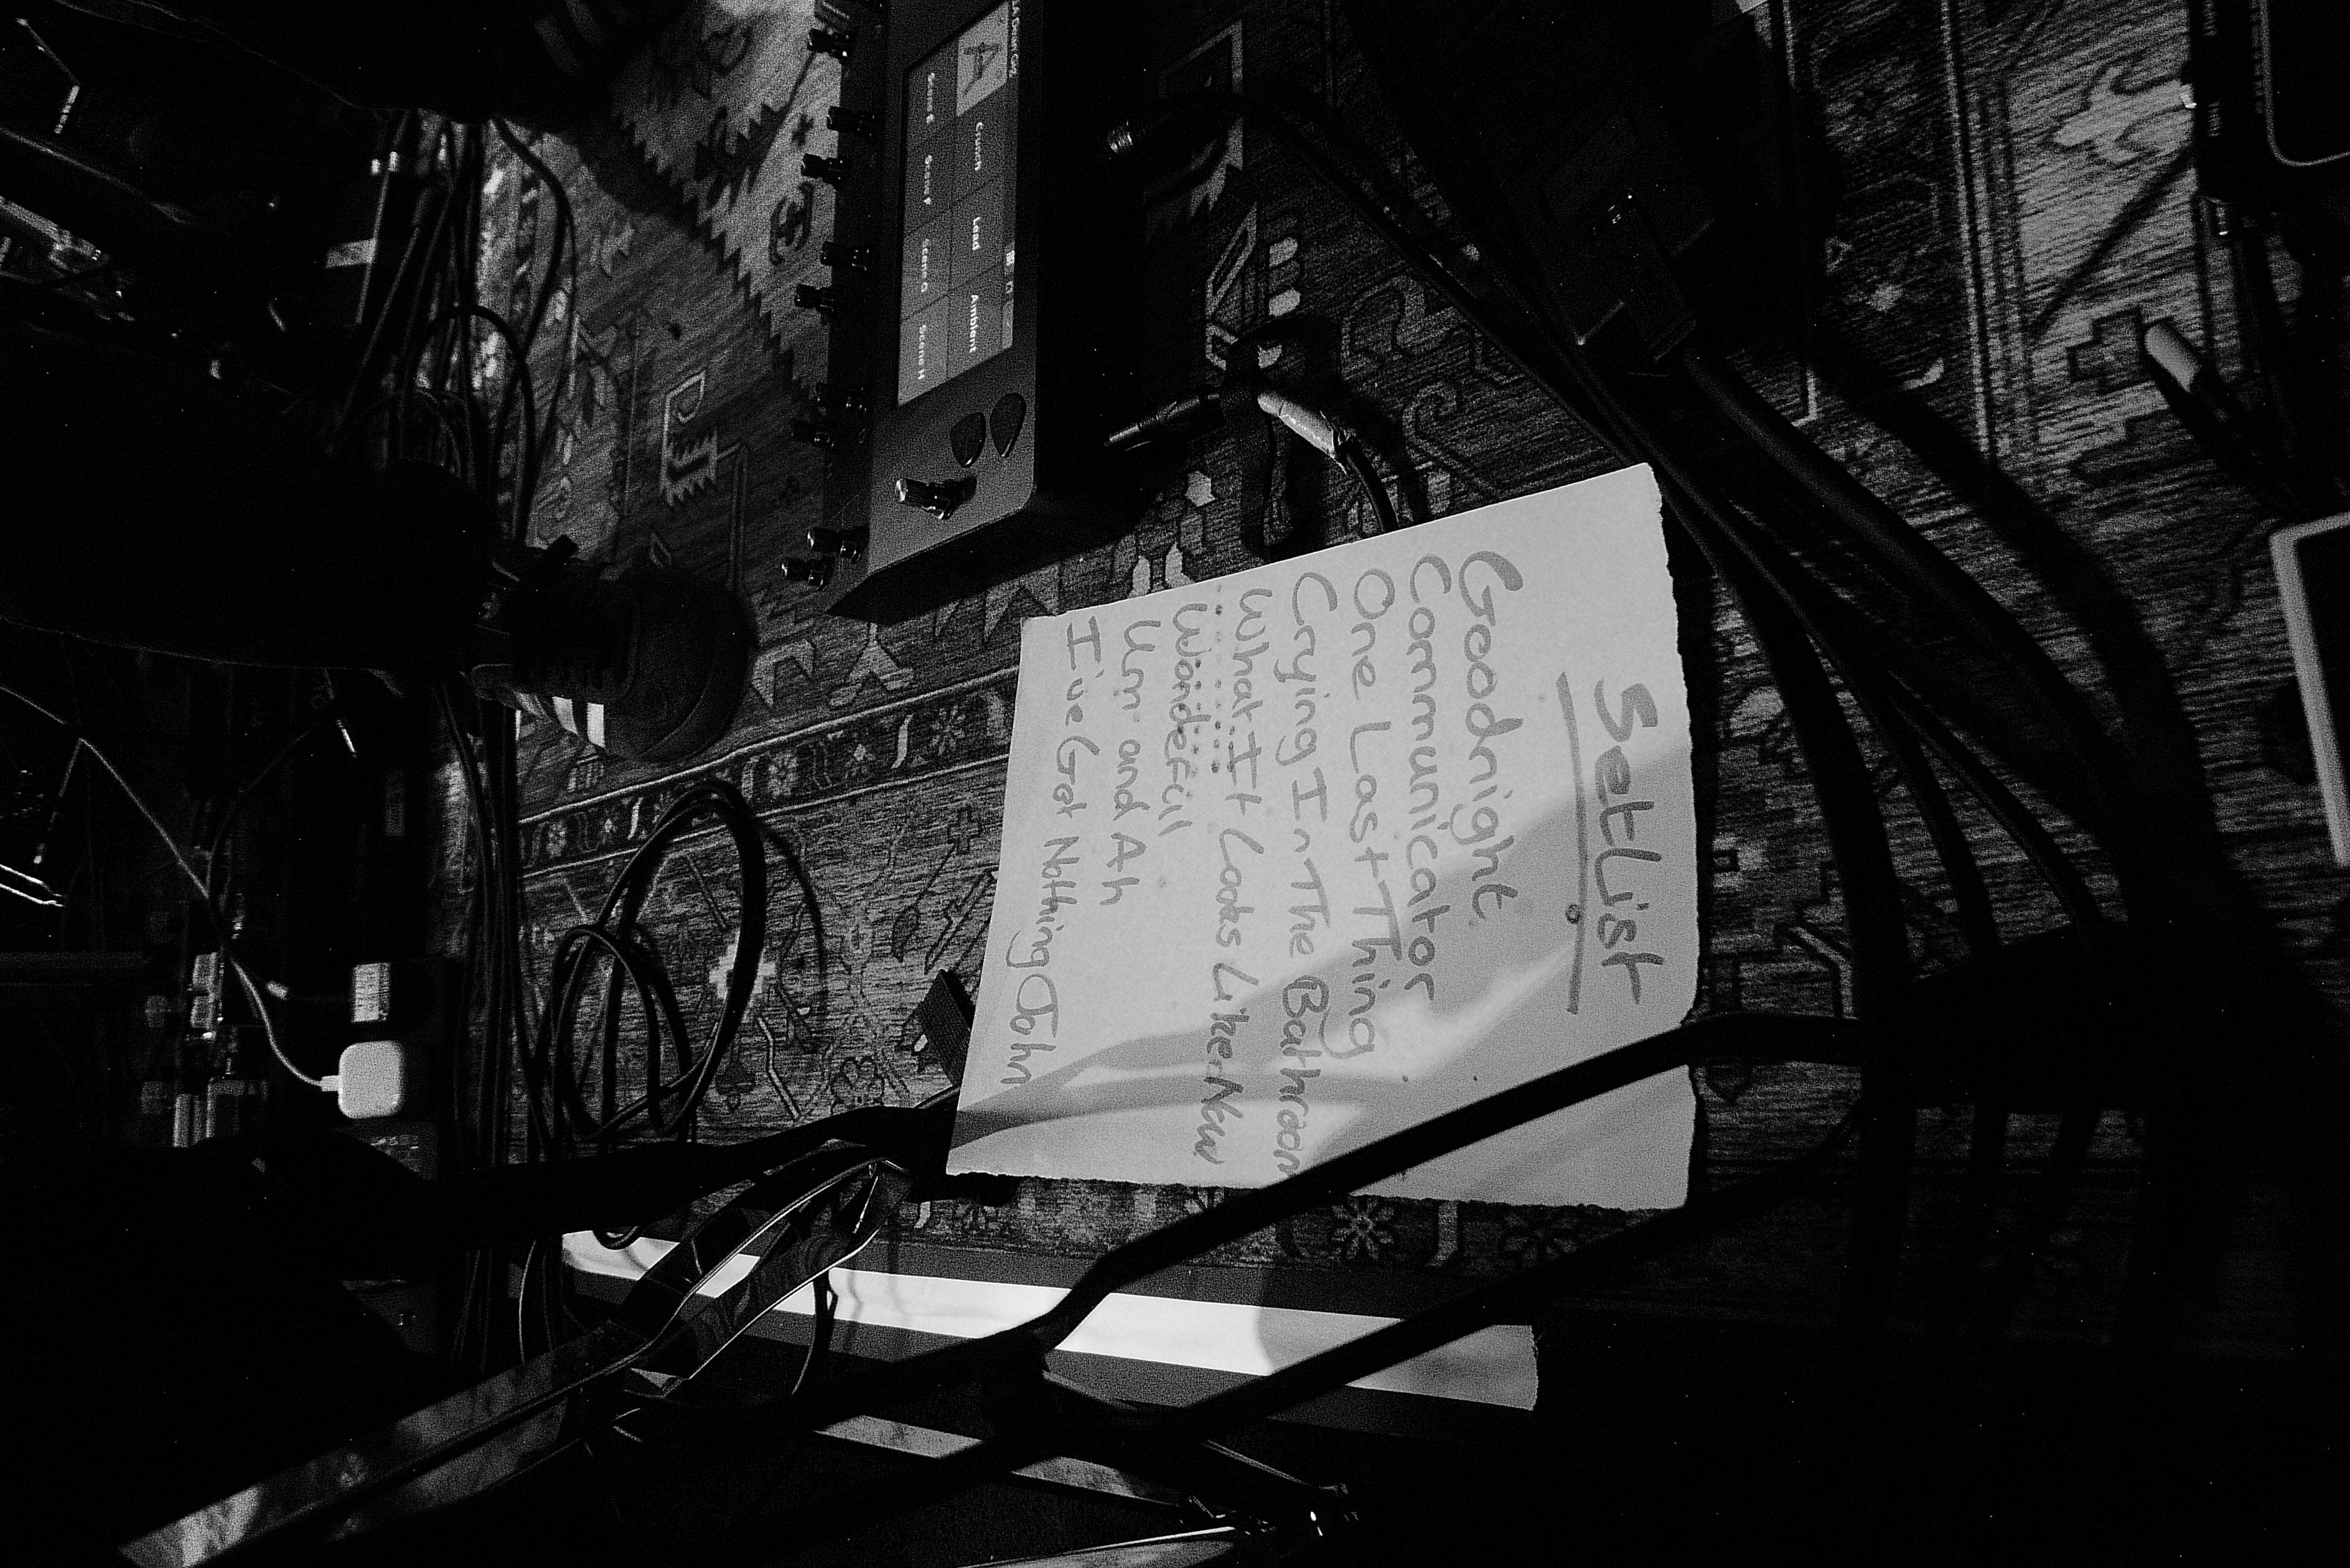 Setlist
Goodnight.
Communicator
One Last Thing
Crying In The Bathroom
What It Looks Like Now
Wonderful
Um and Ah
I've Got Nothing John
A
Crunch
Lead
Ambient
Scene E
Scene F
Scene G
Scene H